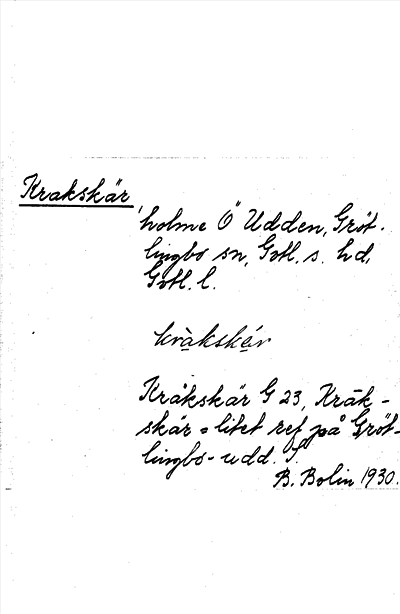 Krakskär,
holme Ö Udden, Gröt-
lingbo sn, Gotl. s. hd,
Gotl. l.
kràkskár
Kråkskär G 23, Kråk-
skär = litet ref på Gröt-
lingbo-udd.
B. Bolin 1930.